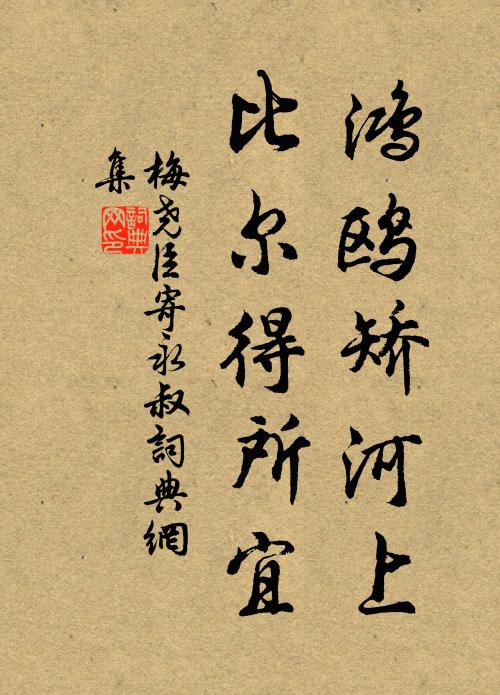 鸿鸥矫河上
比尔得所宜
梅尧臣寄永叔詞典網
集
詞典网印